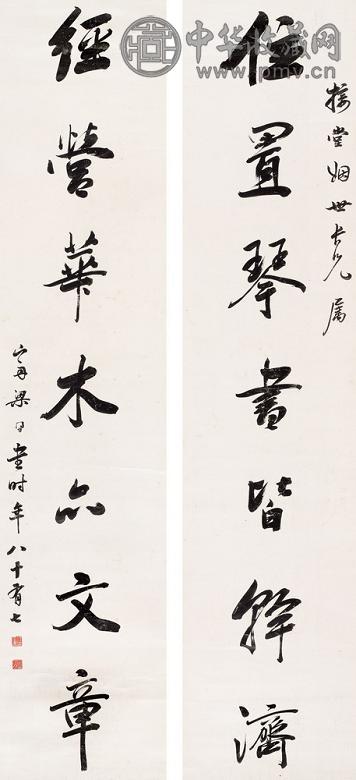 中华收藏网
www.pmv.cn
接堂姻世大兄屬
位置琴書皆幹濟
經營華木亦文章
山舟梁同書時年八十有七